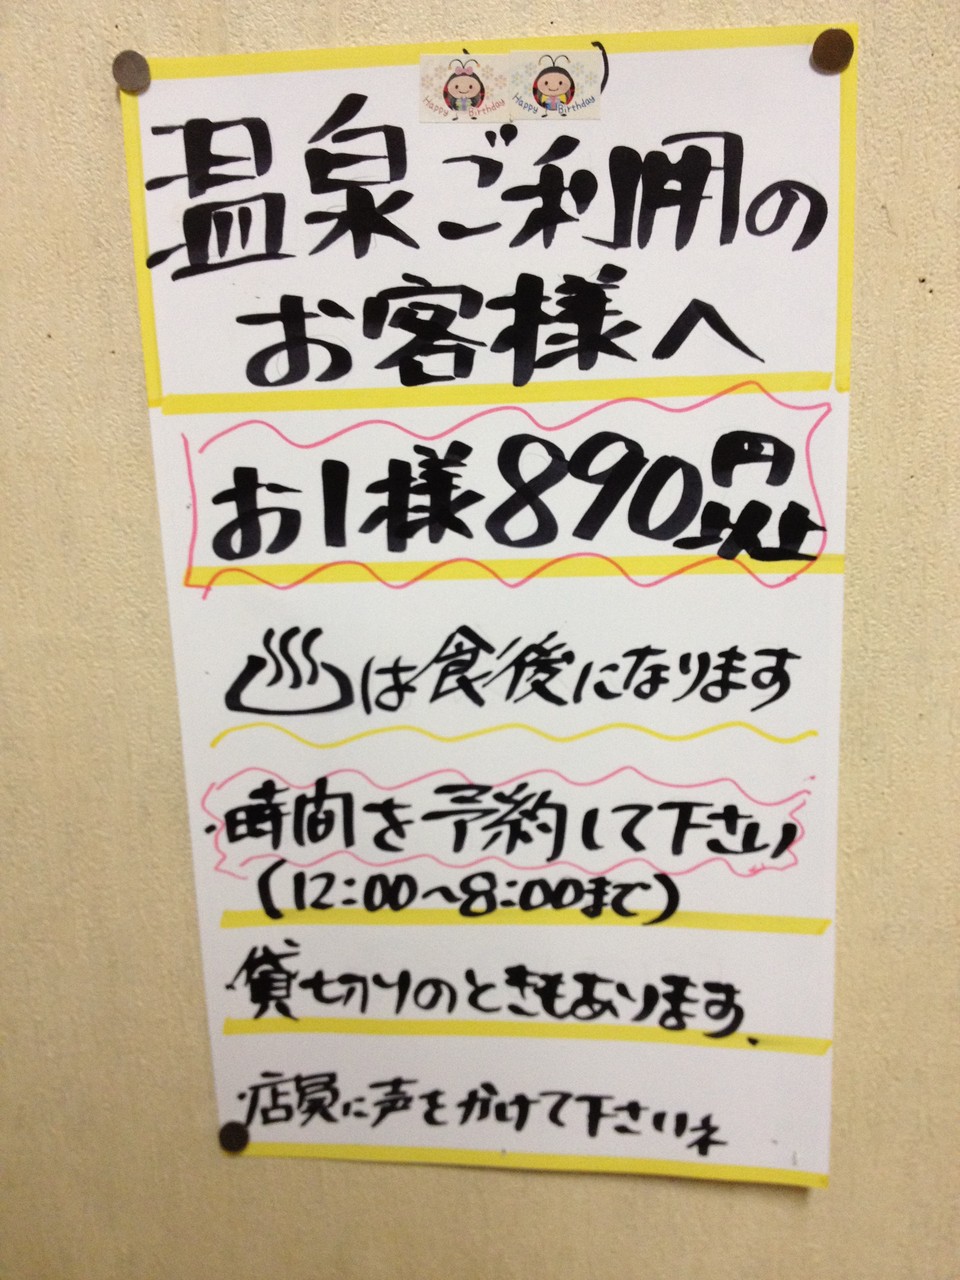 Happy Birthday Happy Birthday
温泉ご利用の
お客様へ
お1様890円以上
♨は食後になります
・時間を予約して下さい
(12:00〜8:00まで)
・貸切りのときもあります、
・店員に声をかけて下さいネ